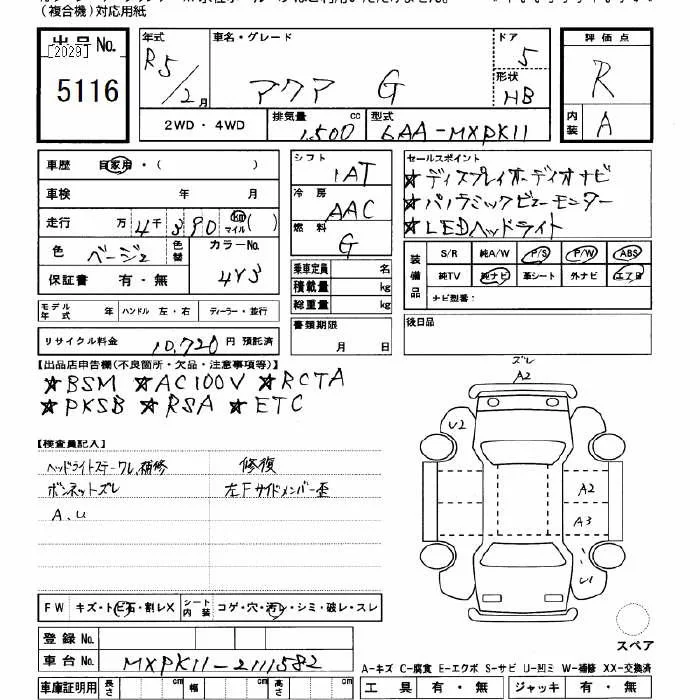 (複合機)対応用紙
出品No.
[2029]
5116
年式 車名・グレード ドア
R5/2月 アクア G 5
形状
HB
2WD・4WD 排気量 cc 型式
1,500 6AA-MXPK11
評価点
R
内装 A
車歴 自家用・( )
車検 年 月
走行 万 4千390 km マイル ( )
色 ベージュ 色替 カラーNo.
4V3
保証書 有・無
モデル年式 年 ハンドル 左・右 ディーラー・並行
リサイクル料金 10,720 円 預託済
シフト
1AT
冷房
AAC
燃料
G
乗車定員 名
積載量 kg
総重量 kg
書類期限
月 日
セールスポイント
☆ディスプレイオーディオナビ
☆パノラミックビューモニター
☆LEDヘッドライト
装備品 S/R 純A/W P/S P/W ABS
純TV 純ナビ 革シート 外ナビ エアB
ナビ型番:
後日品
【出品店申告欄(不良箇所・欠品・注意事項等)】
☆BSM ☆AC100V ☆RCTA
☆PKSB ☆RSA ☆ETC
【検査員記入】
ヘッドライトステーワレ、補修 修復
ボンネットズレ 左Fサイドメンバー歪
A、U
ズレ
A2
U2
A2
A3
U1
スペア
FW キズ・トビ石・割レX シート内装 コゲ・穴・汚レ・シミ・破レ・スレ
登録No.
車台No. MXPK11-2111582
車庫証明用 長さ cm 幅 cm 高さ cm
A-キズ C-腐食 E-エクボ S-サビ U-凹ミ W-補修 XX-交換済
工具 有・無 ジャッキ 有・無